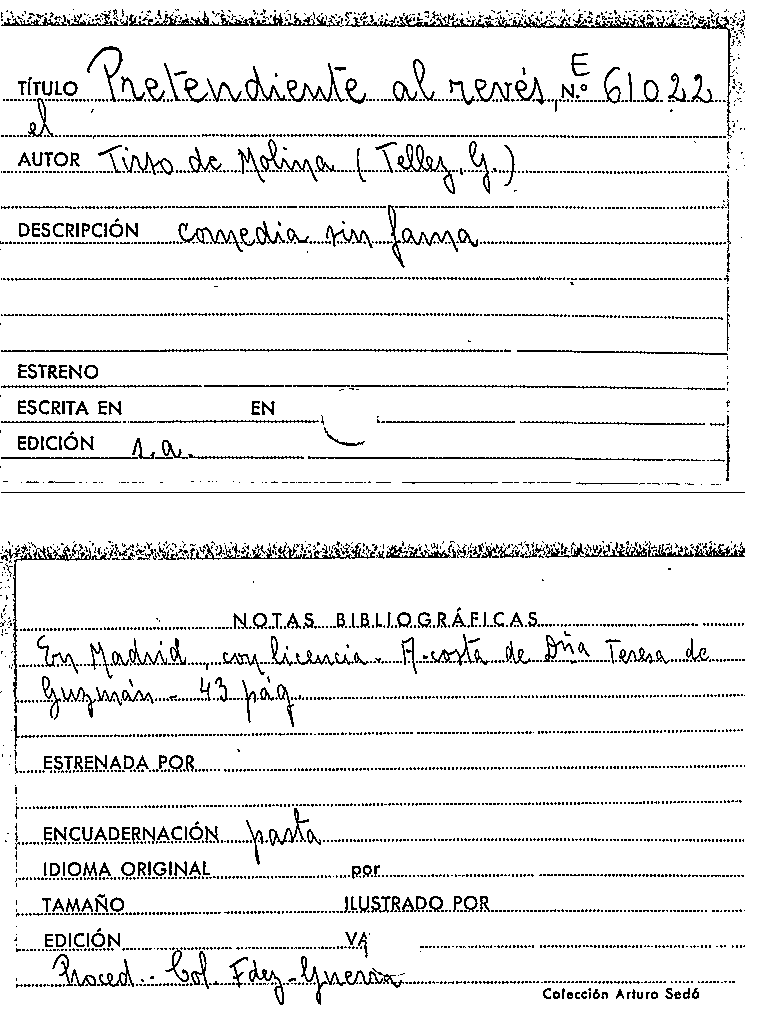 TÍTULO Pretendiente al revés, E N.º 61022
el
AUTOR Tirso de Molina (Tellez, G.)
DESCRIPCIÓN comedia sin fama
ESTRENO
ESCRITA EN EN
EDICIÓN s.a.
NOTAS BIBLIOGRÁFICAS
En Madrid, con licencia - A costa de Dña Teresa de
Guzmán - 43 pág.
ESTRENADA POR
ENCUADERNACIÓN pasta
IDIOMA ORIGINAL por
TAMAÑO ILUSTRADO POR
EDICIÓN
Proced.- Col. Fdez-Guerra
Colección Arturo Sedó